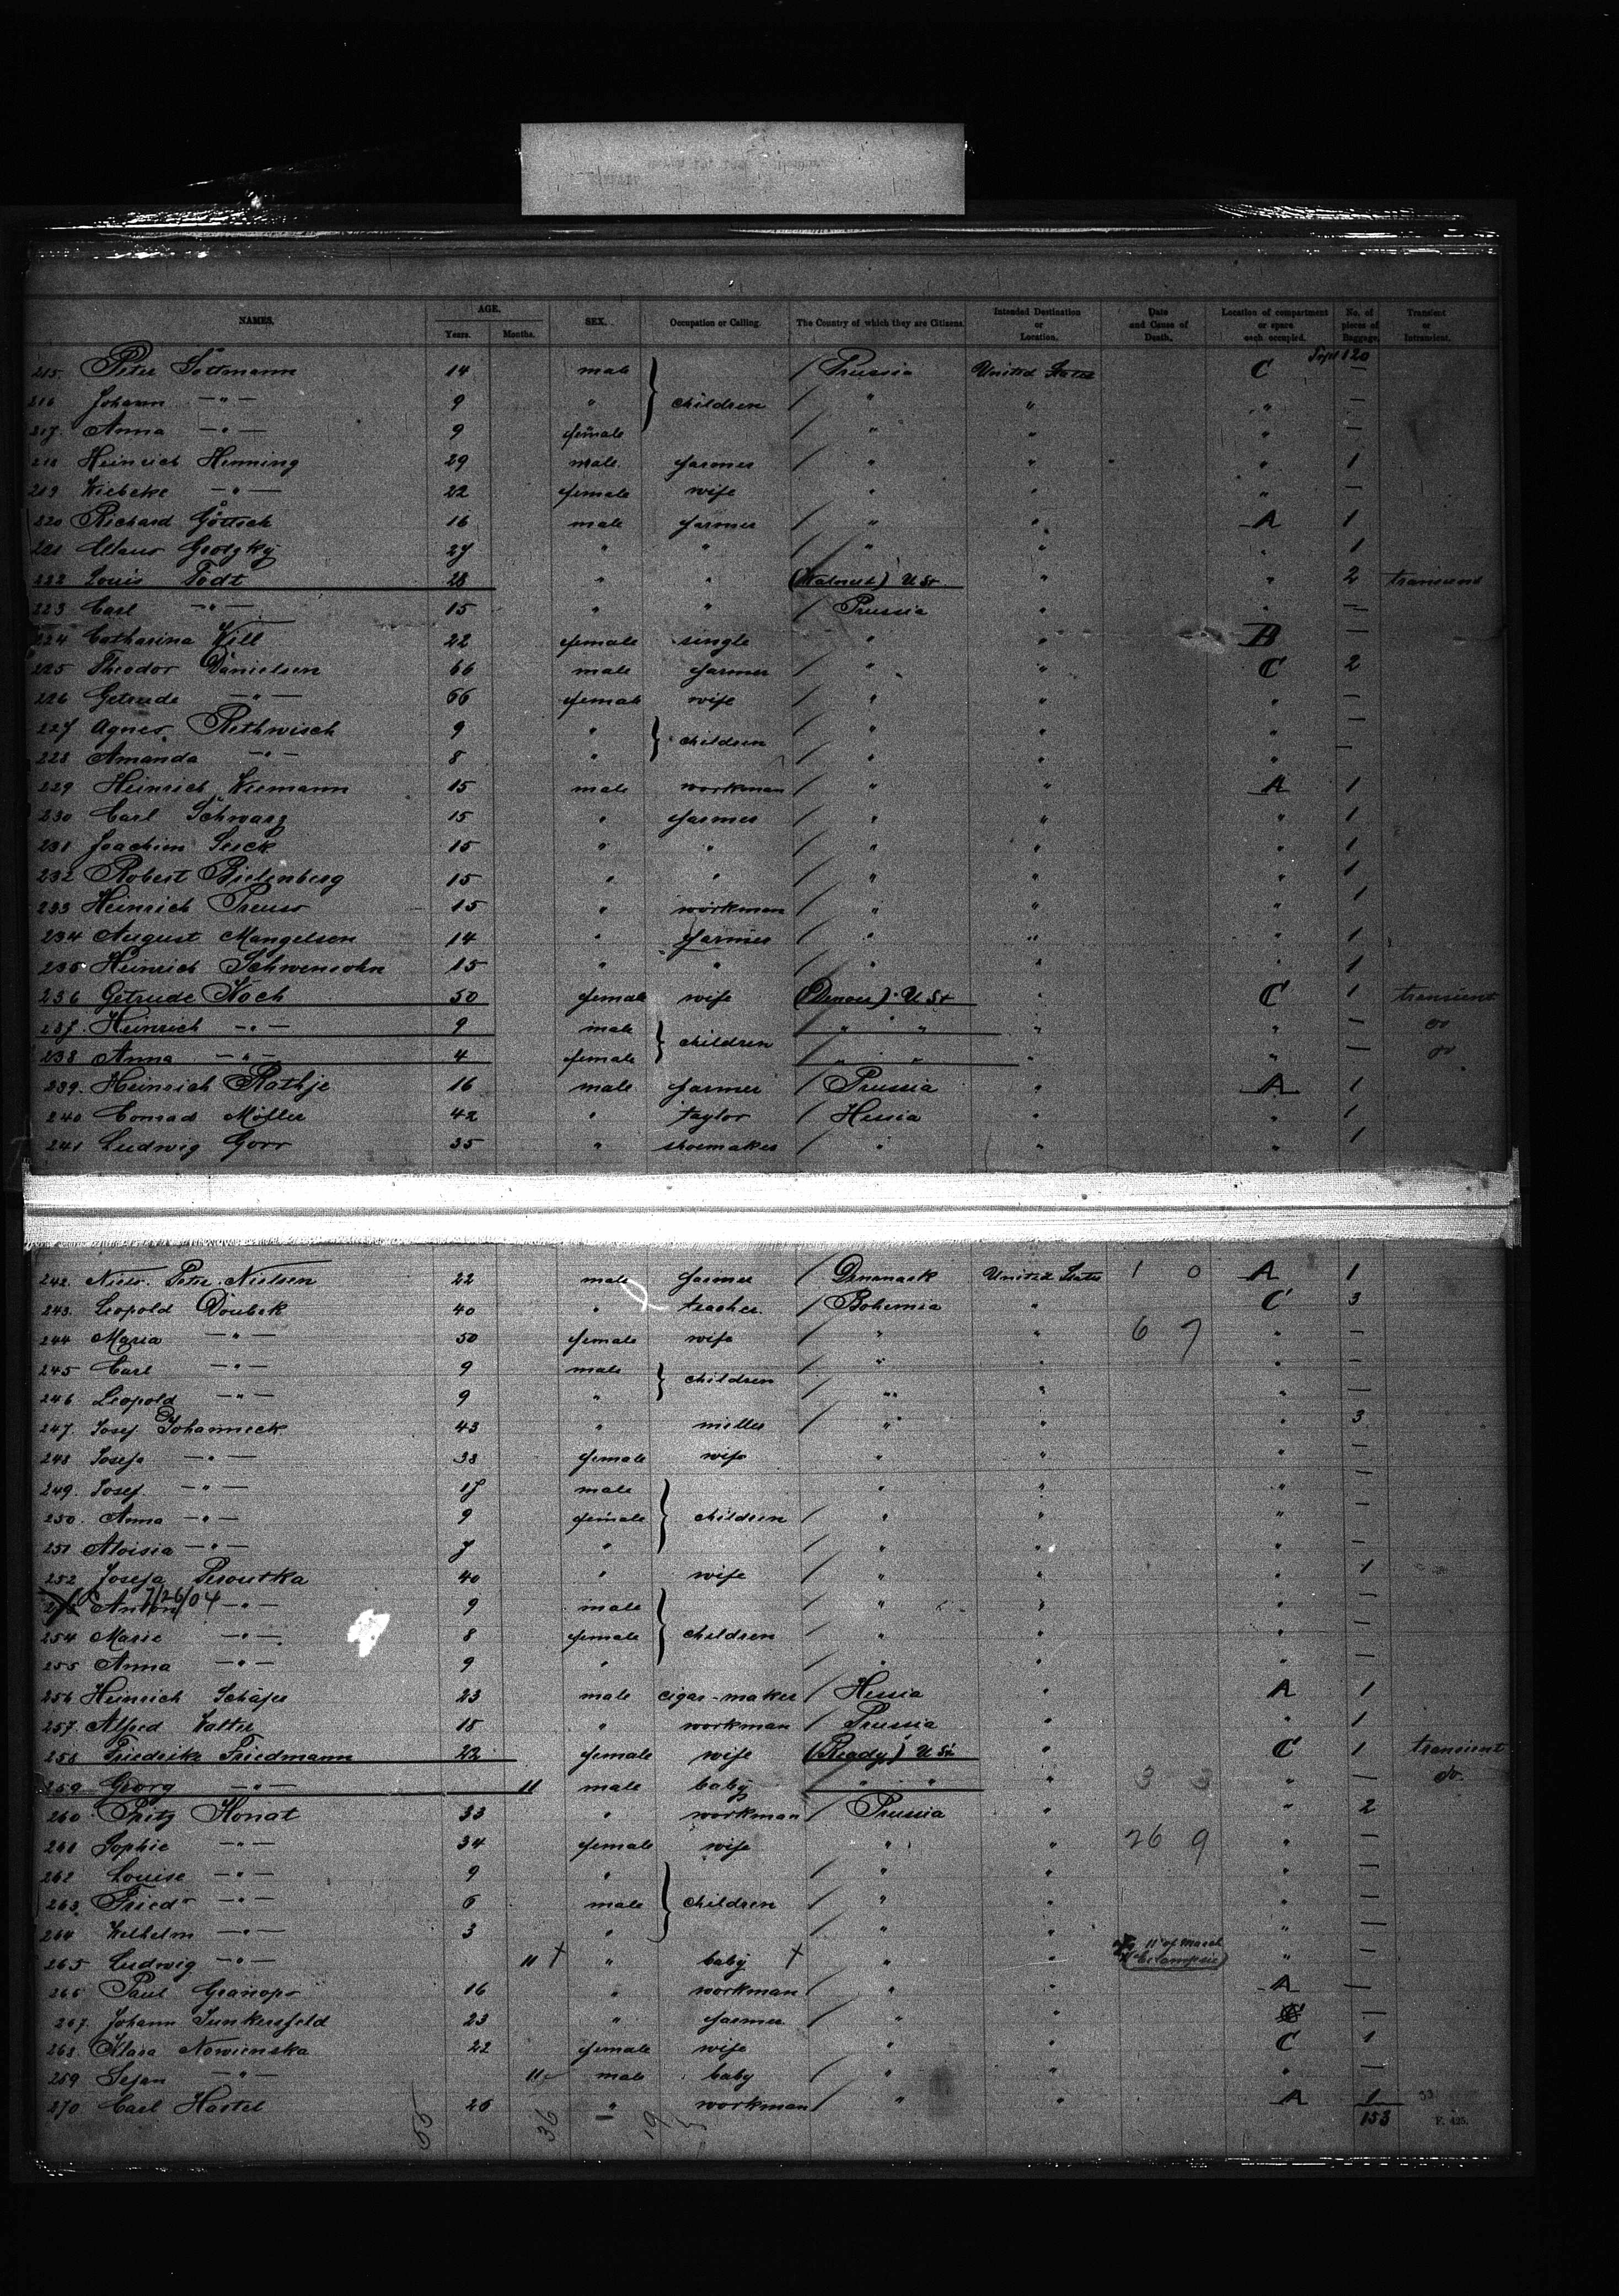 NAMES. AGE. Years. Months. SEX. Occupation or Calling. The Country of which they are Citizens. Intended Destination or Location. Date and Cause of Death. Location of compartment or space each occupied. No. of pieces of Baggage. Transient or Intransient.
215. Peter Söttmann 14 male / Prussia United States C Spt 120 —
216 Johann —"— 9 " } children / " " " —
217. Anna —"— 9 female / " " " —
218 Heinrich Henning 29 male farmer / " " " 1
219 Wiebcke —"— 22 female wife " " " —
220 Richard Göttsch 16 male farmer / " " A 1
221 Claus Grotzky 27 " " / " " " 1
222 Louis Todt 28 " " (Walnut) U St " " 2 transient
223 Carl —"— 15 " " / Prussia " " —
224 Catharina Will 22 female single " " B —
225 Theodor Danielsen 66 male farmer / " " C 2
226 Getrude —"— 66 female wife / " " " —
227 Agnes Rethwisch 9 " } children / " " " —
228 Amanda —"— 8 " / " " " —
229 Heinrich Wiemann 15 male workman / " " A 1
230 Carl Schwarz 15 " farmer / " " " 1
231 Joachim Serck 15 " " / " " " 1
232 Robert Bielenberg 15 " " / " " " 1
233 Heinrich Preuss 15 " workman / " " " 1
234 August Mangelsen 14 " farmer / " " " 1
235 Heinrich Schwensohn 15 " " / " " " 1
236 Getrude Koch 50 female wife (Denver) U St " C 1 transient
237. Heinrich —"— 9 male } children / " " " " — do
238 Anna —"— 4 female / " " " " — do
239. Heinrich Rathje 16 male farmer / Prussia " A 1
240 Conrad Möller 42 " taylor / Hessia " " 1
241 Ludwig Gorr 35 " shoemaker / " " " 1
242. Niels Peter Nielsen 22 male farmer / Denmark United States 1 0 A 1
243. Leopold Doubek 40 " teacher / Bohemia " C 3
244 Maria —"— 50 female wife / " " 6 7 " —
245 Carl —"— 9 male } children / " " " —
246 Leopold —"— 9 " / " " " —
247. Josef Johanneck 43 " miller / " " " 3
248 Josefa —"— 38 female wife " " " —
249. Josef —"— 17 male " " " —
250. Anna —"— 9 female } children / " " " —
251 Aloisia —"— 7 " / " " " —
252 Josefa Peroutka 40 " wife / " " " 1
253 Anton 7/26/04 —"— 9 male / " " " —
254 Marie —"— 8 female } children / " " " —
255 Anna —"— 9 " / " " " —
256 Heinrich Schäfer 23 male cigar-maker / Hessia " A 1
257. Alfred Walter 18 " workman / Prussia " " 1
258 Friedrike Friedmann 22 female wife (Ready) U St " C 1 transient
259 Georg —"— 11 male baby " " " 3 3 " — do.
260. Fritz Konat 33 " workman / Prussia " " 2
261 Sophie —"— 34 female wife " " 26 9 " —
262 Louise —"— 9 " / " " " —
263. Friedr —"— 6 male } children / " " " —
264 Wilhelm —"— 3 " / " " " —
265 Ludwig —"— 11 † " baby † " " 11 of March (Eclampsie) " —
266 Paul 16 " workman / " " A —
267. Johann Junkersfeld 23 " farmer / " " C —
268. Klara Nowienska 22 female wife " " C 1
259 —"— 11 male baby / " " " —
270 Carl Hastel 26 " workman / " " A 1
55 36 19 153 33 F. 425.